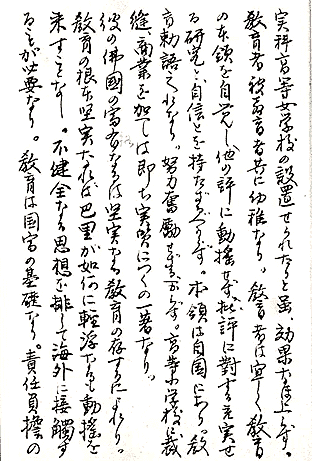 実科高等女学校の設置せられたると雖、効果なほ上らず。
教育者被教育者共に幼稚なり。教育者は宜しく教育
の本領を自覚し他の評に動揺せず、批評に対する充実せ
る研究と自信とを持たざるべからず。本領は自国にあり。教
育勅語これなり。努力奮励せざるべからず。高等小学校に裁
縫、商業を加へしは即ち実際につくの一著なり。
彼の佛國の富有なるは堅実なる教育の存するによれり。
教育の根本堅実なれば巴里が如何に軽浮なるも動揺を
来すことなし。不健全なる思想を排して海外に接触す
るが必要なり。教育は国富の基礎なり。責任負擔の